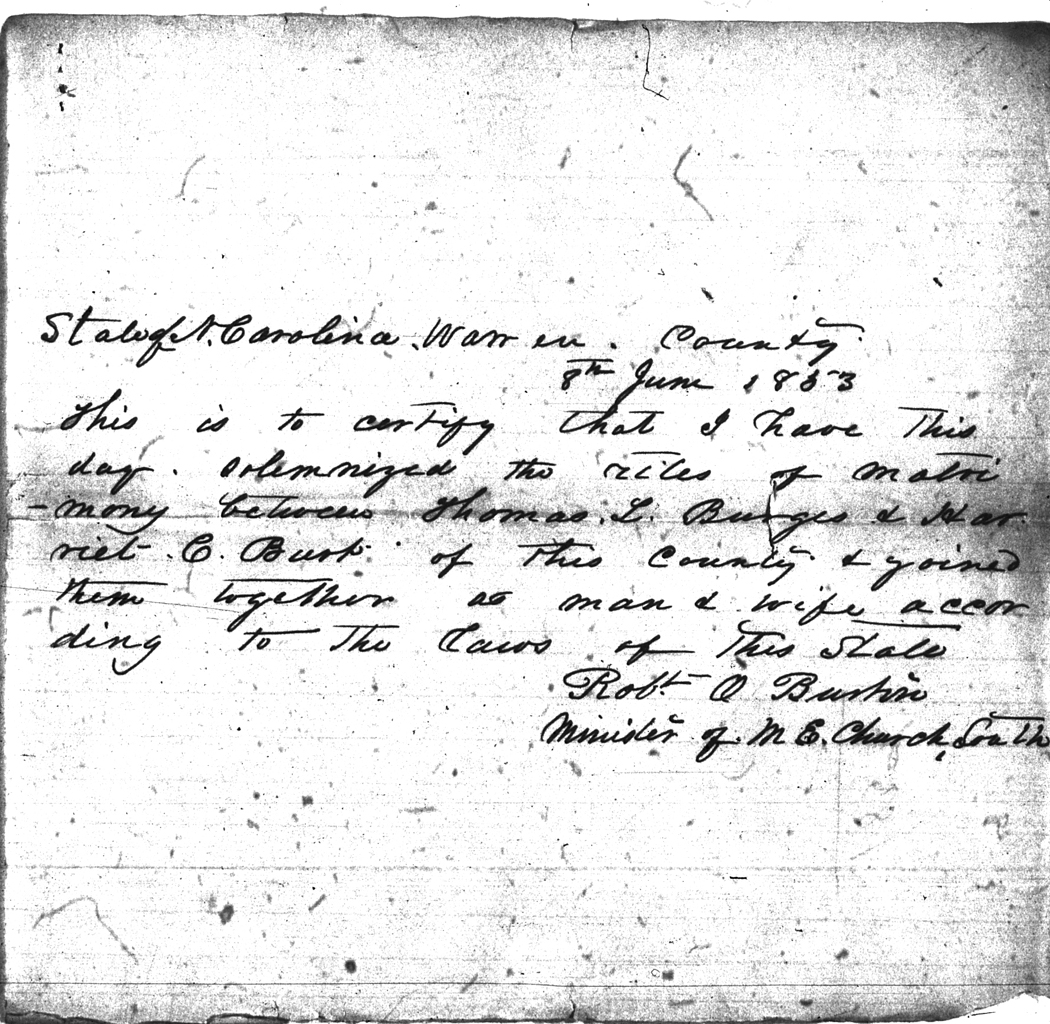 State of N. Carolina. Warren. County.
8th June 1853
This is to certify that I have this
day. solemnized the rites of matri
-mony between Thomas. L. Burges & Har
riet. C. of this County & joined
them together as man & wife accor
ding to the laws of this State
Robt O
Minister of. M E. Church, South